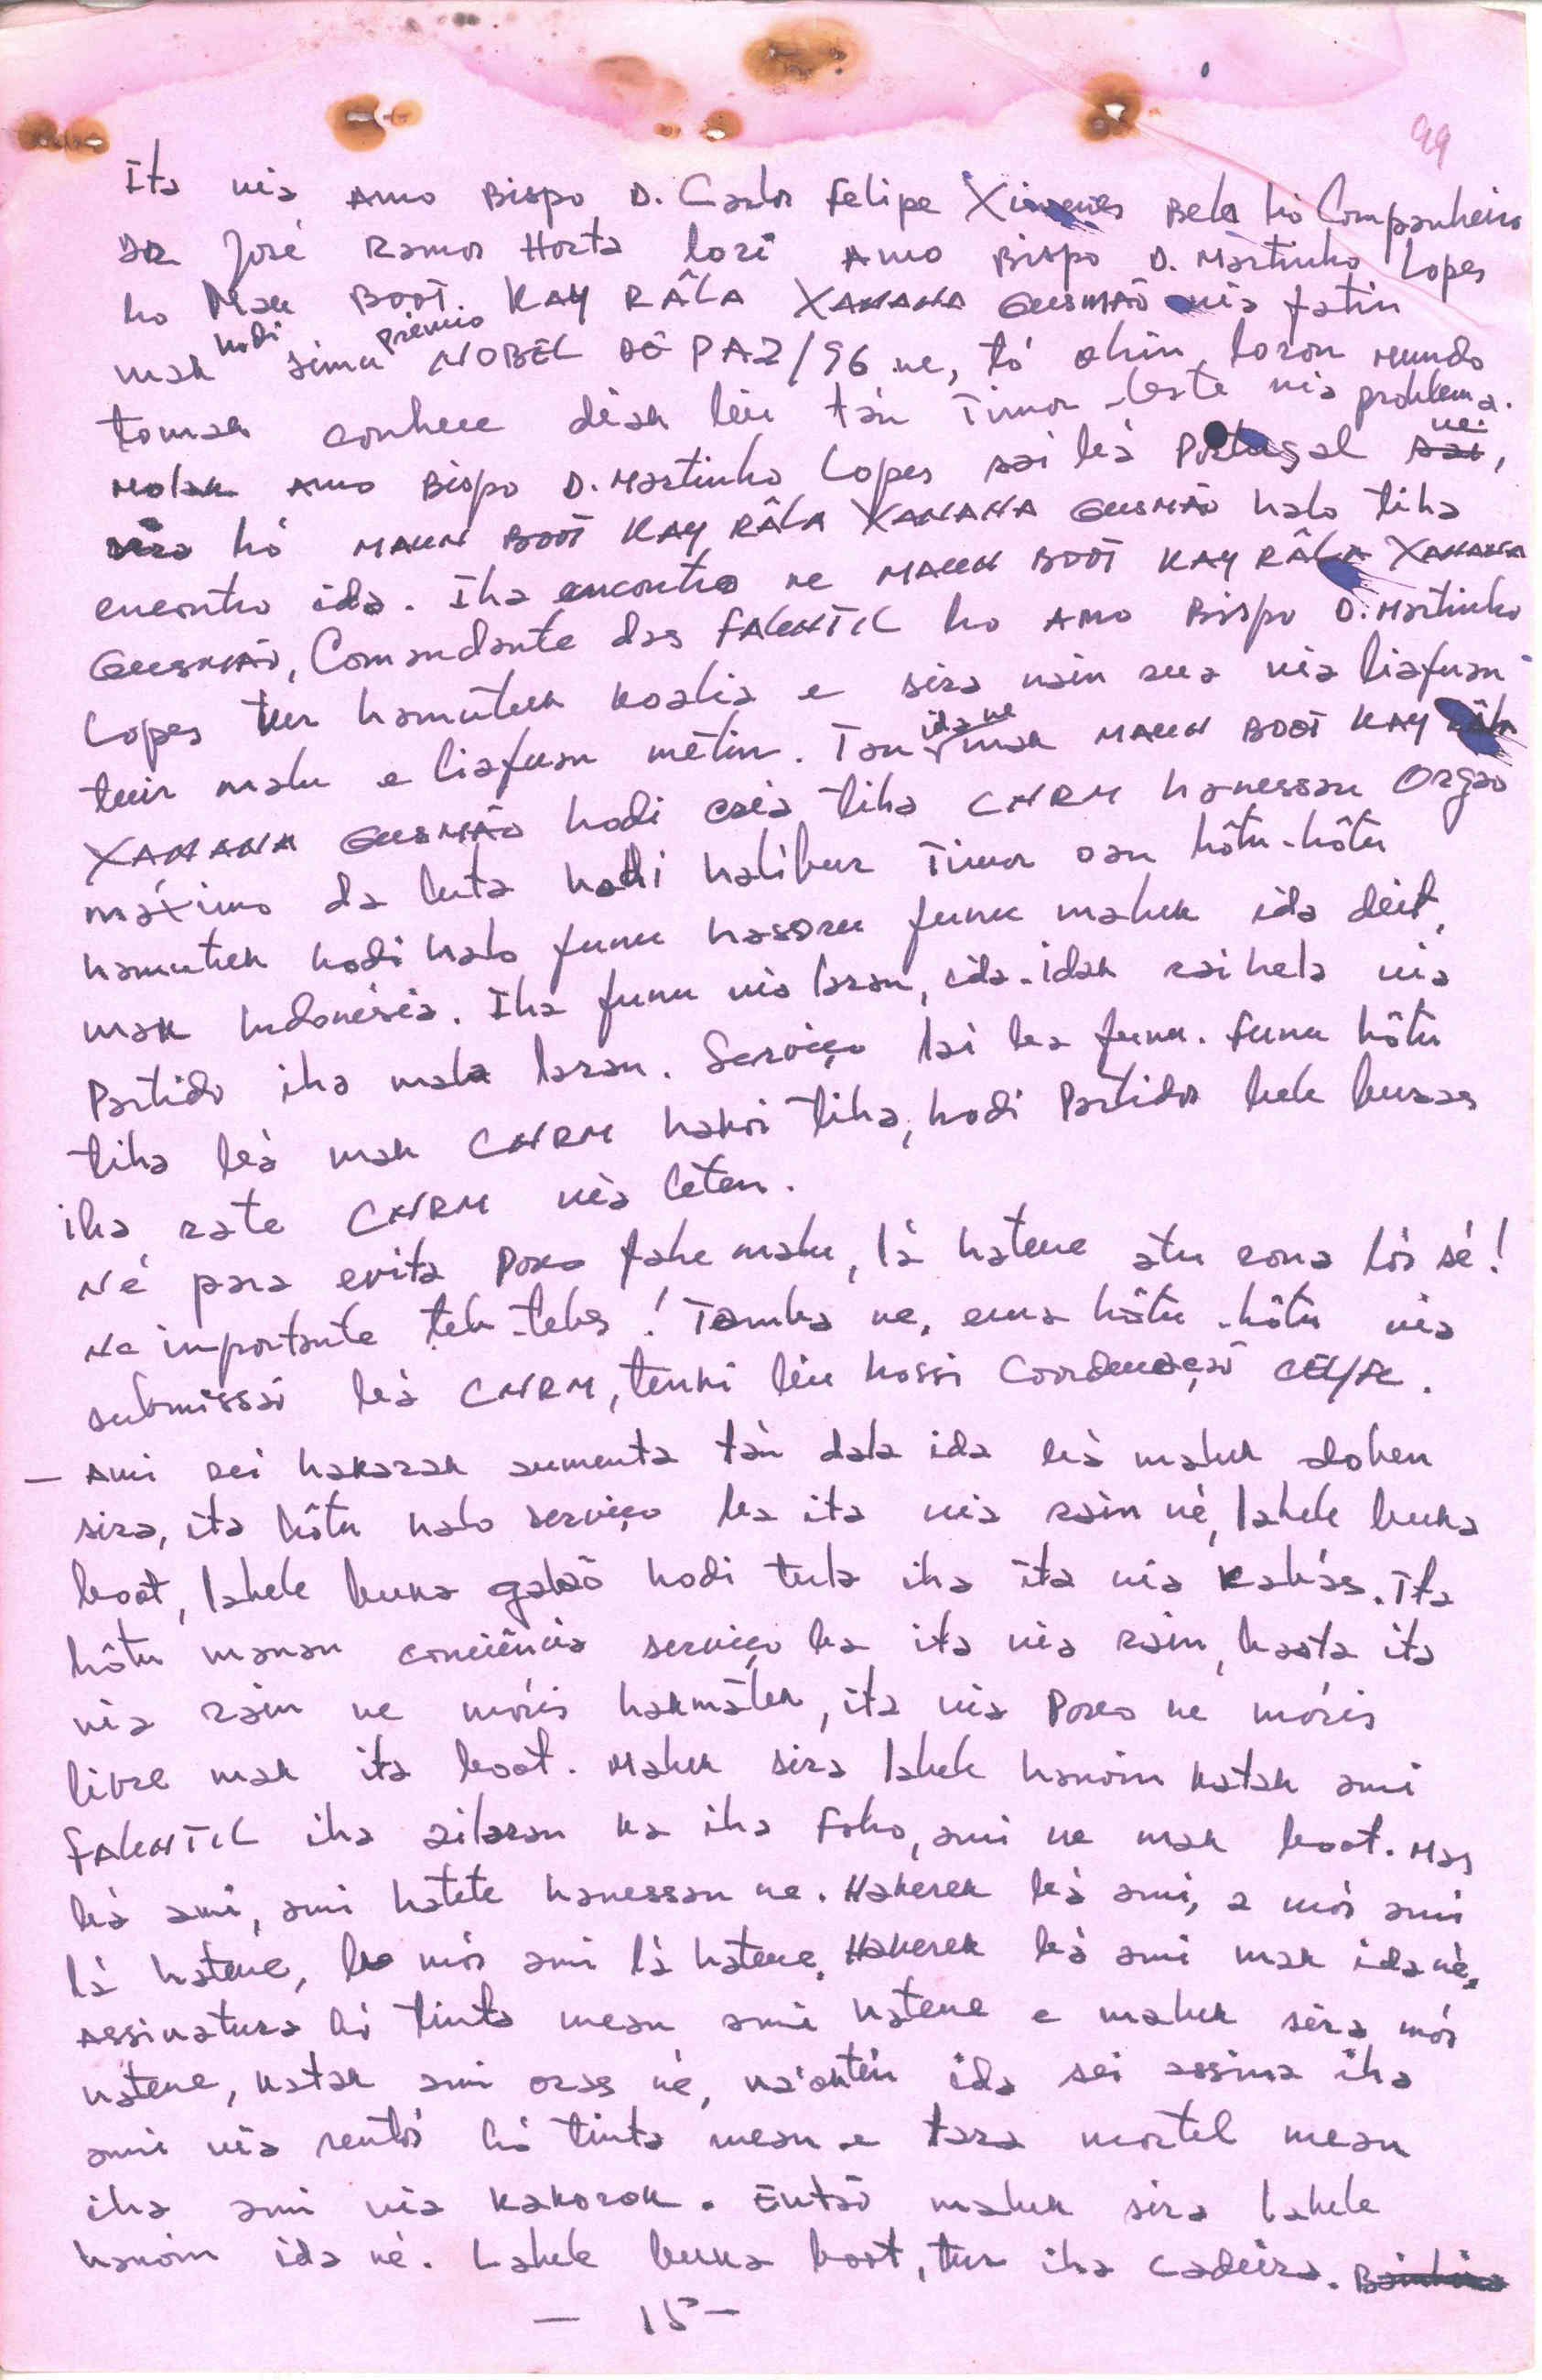 99
Ita nia Amo Bispo D. Carlos Felipe Ximenes Belo hó Companheiro
DR José Ramos Horta lori Amo Bispo D. Martinho Lopes
ho Mau BOOT. KAY RÂLA XANANA GUSMÃO nia fatin
mak hodi simu premio NOBEL DE PAZ/96 ne, tó ohin loron mundo
tomak conhece diak liu tán Timor-Leste nia problema.
Molok Amo Bispo D. Martinho Lopes sai bá Portugal ne,
hó MAUN BOOT KAY RÂLA XANANA GUSMÃO halo tiha
encontro ida. Iha encontro ne MAUN BOOT KAY RÂLA XANANA
GUSMÃO, Comandante das FALINTIL ho Amo Bispo D. Martinho
Lopes tur hamutuk koalia e sira nain rua nia liafuan
tuir malu e liafuan metin. Tan ida ne mak MAUN BOOT KAY RÂLA
XANANA GUSMÃO hodi cria tiha CNRM hanessan Orgao
máximo da luta hodi halibur Timor oan hôtu-hôtu
hamutuk hodi halo funu hassoru funu maluk ida deit,
mak Indonésia. Iha funu nia laran, ida-idak rai hela nia
Partido iha mala laran. Serviço lai ba funu. Funu hôtu
tiha bá mak CNRM hakoi tiha, hodi Partidos bele buras
iha rate CNRM nia leten.
Né para evita Povo fahe malu, lá hatene atu rona lós sé!
Ne importante tebe-tebes! Tamba ne, ema hôtu-hôtu nia
submissão bá CNRM, tenki liu hossi Coordenação CE/FC.
- Ami sei hakarak aumenta tán dala ida bá maluk doben
sira, ita hôtu halo serviço ba ita nia rain né, labele buka
boot, labele buka galão hodi tula iha ita nia kabás. Ita
hôtu manan conciência serviço ba ita nia rain, basta ita
nia rain ne móris hakmátek, ita nia Povo ne móris
livre mak ita boot. Maluk sira labele hanoin katak ami
FALINTIL iha ailaran ka iha foho, ami ne mak boot. Mas
bá ami, ami hatete hanessan ne. Hakerek bá ami, a mós ami
lá hatene, b mós ami lá hatene. Hakerek bá ami mak ida né,
Assinatura hó tinta mean ami hatene e maluk sira mós
hatene, katak ami oras né, ida sei assina iha
ami nia rentós hó tinta mean e tara mortel mean
iha ami nia kakorok. Então maluk sira labele
hanoin ida né. Labele buka boot, tur iha cadeira.
- 15 -